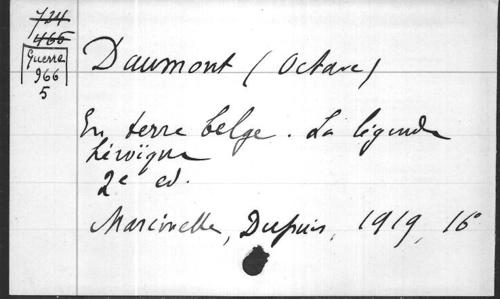 734
466
Guerre
966
5
Daumont (Octave)
En terre belge. La légende
héroïque
2e ed.
Marcinelle, Dupuis, 1919, 16°